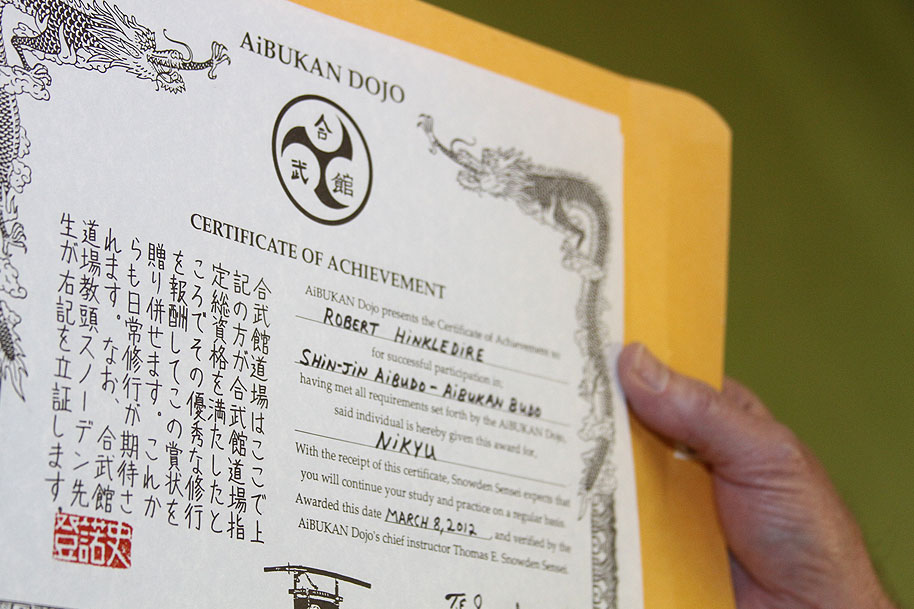 AiBUKAN DOJO
合
武 館
CERTIFICATE OF ACHIEVEMENT
AiBUKAN Dojo presents the Certificate of Achievement to
ROBERT HiNKLEDiRE
for successful participation in,
SHiN-JiN AiBUDO - AiBUKAN BUDO
having met all requirements set forth by the AiBUKAN Dojo,
said individual is hereby given this award for,
NiKYU
With the receipt of this certificate, Snowden Sensei expects that
you will continue your study and practice on a regular basis.
Awarded this date MARCH 8, 2012, and verified by the
AiBUKAN Dojo's chief instructor Thomas E. Snowden Sensei.
合武館道場はここで上
記の方が合武館道場指
定総資格を満たしたと
ころでその優秀な修行
を報酬してこの賞状を
贈り併せます。これか
らも日常修行が期待さ
れます。なお、合武館
道場教頭スノーデン先
生が右記を立証します。
史諾登